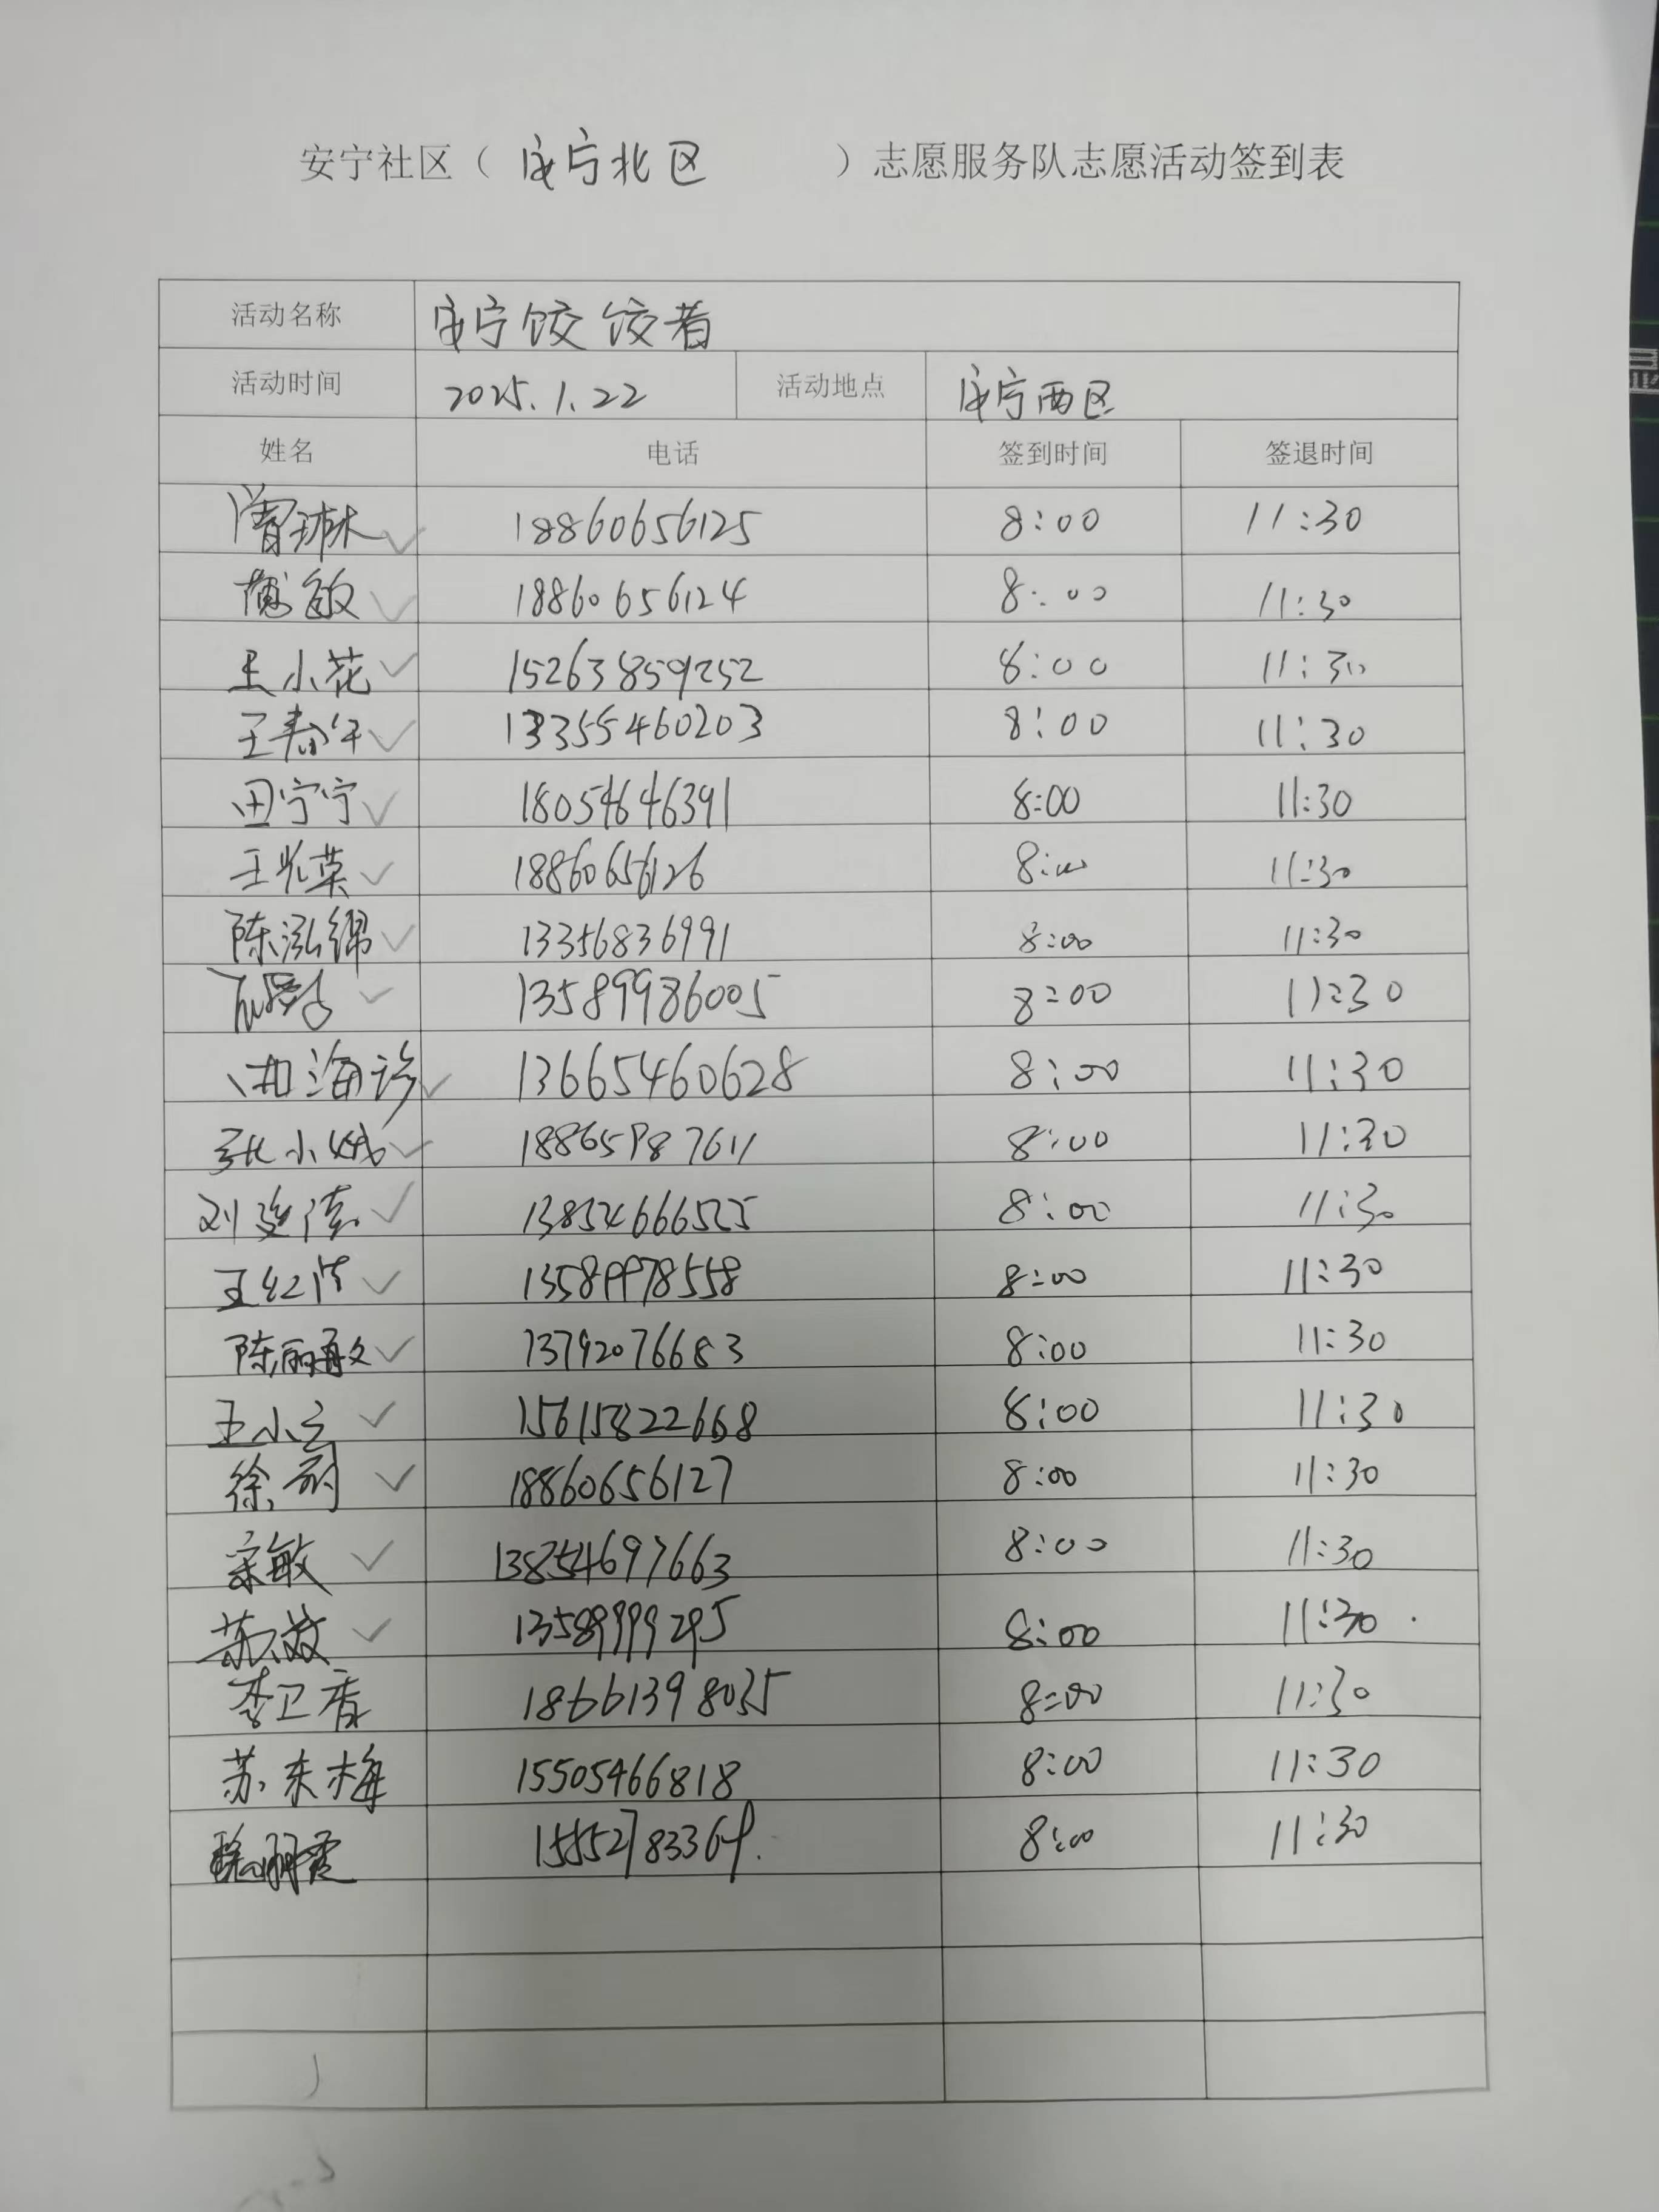 安宁社区（ 咸宁北区 ）志愿服务队志愿活动签到表
活动名称 咸宁饺饺者
活动时间 2025.1.22 活动地点 咸宁西区
姓名 电话 签到时间 签退时间
曾琳 18860656125 8:00 11:30
敏 18860656124 8:00 11:30
王小花 15263859252 8:00 11:30
王春 13355460203 8:00 11:30
田宁宁 18054646391 8:00 11:30
王光荣 18860656126 8:00 11:30
陈泓绵 13356836991 8:00 11:30
13589986005 8:00 11:30
海诊 13665460628 8:00 11:30
张小娥 18865987611 8:00 11:30
刘 13854666525 8:00 11:30
王红 13589978558 8:00 11:30
陈丽敏 13792076683 8:00 11:30
王小立 15615822668 8:00 11:30
徐丽 18860656127 8:00 11:30
宗敏 13854697663 8:00 11:30
苏效 13589999295 8:00 11:30
李卫香 18661398035 8:00 11:30
苏东梅 15505466818 8:00 11:30
15552783364 8:00 11:30